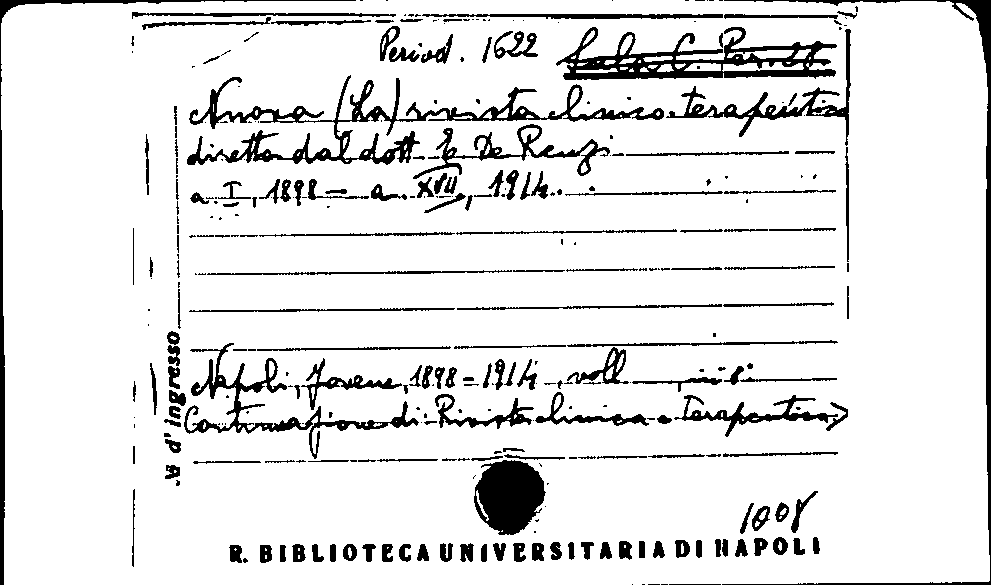 Period. 1622 Sala C. Per. 28.
Nuova (La) rivista clinico-terapeutica
diretta dal dott. E. De Renzi
a. I, 1898 – a. XVII, 1914.
Napoli, Jovene, 1898-1914, voll , in 8°
Continuazione di: Rivista clinica e Terapeutica>
N d'ingresso
1008
R. BIBLIOTECA UNIVERSITARIA DI NAPOLI